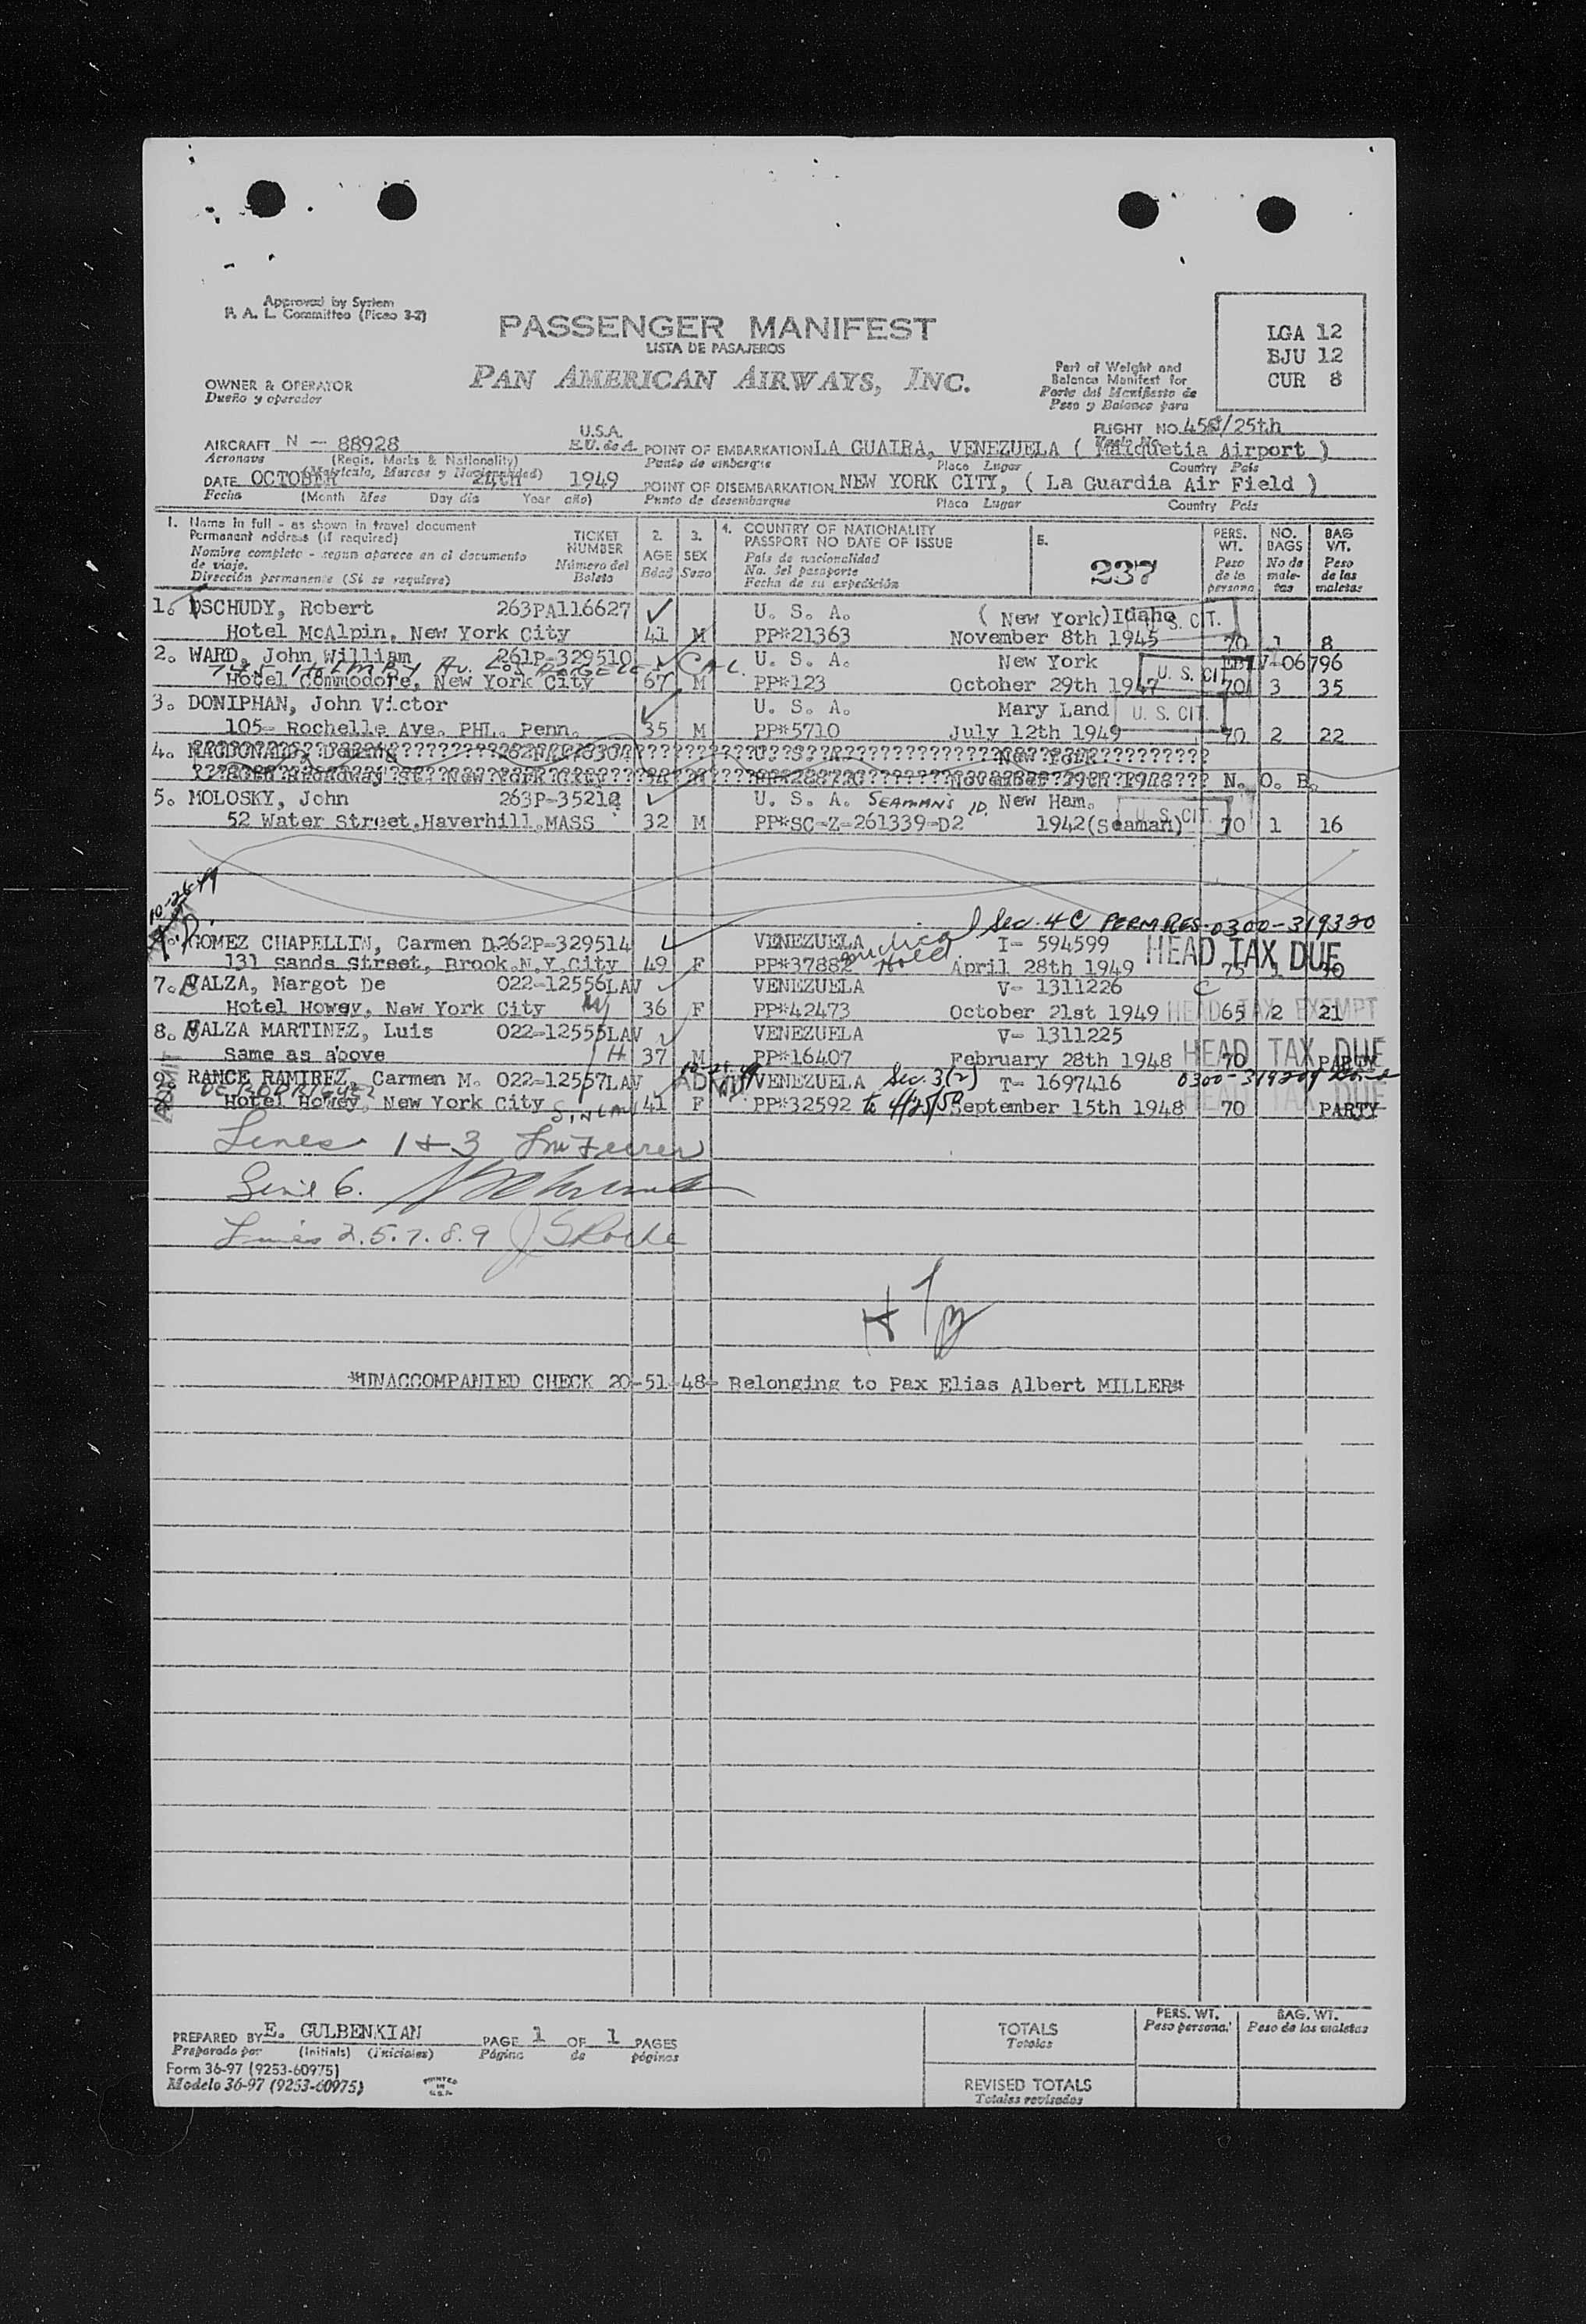 Approved by System
P. A. L. Committee (Picao 3-2)
PASSENGER MANIFEST
LISTA DE PASAJEROS
PAN AMERICAN AIRWAYS, INC.
LGA 12
BJU 12
CUR 8
Part of Weight and
Balance Manifest for
Parte del Manifiesto de
Peso y Balance para
OWNER & OPERATOR
Dueño y operador
FLIGHT NO. /25th
AIRCRAFT N - 88928 U.S.A. E.U. de A.
Aeronave (Regis. Marks & Nationality)
(Matricula, Marcas y Nacionalidad)
POINT OF EMBARKATION LA GUAIRA, VENEZUELA ( Maiquetia Airport )
Punto de embarque Place Lugar Country Pais
DATE OCTOBER 24th 1949
Fecha (Month Mes Day dia Year año)
POINT OF DISEMBARKATION NEW YORK CITY, ( La Guardia Air Field )
Punto de desembarque Place Lugar Country Pais
1. Name in full - as shown in travel document
Permanent address (if required)
Nombre completo - segun aparece en el documento
de viaje.
Dirección permanente (Si se requiere)
TICKET
NUMBER
Número del
Boleto
2.
AGE
Edad
3.
SEX
Sexo
4. COUNTRY OF NATIONALITY
PASSPORT NO DATE OF ISSUE
Pais de nacionalidad
No. del pasaporte
Fecha de su expedición
5.
237
PERS.
WT.
Peso
de la
persona
NO.
BAGS
No de
male-
tas
BAG
WT.
Peso
de las
maletas
1. DSCHUDY, Robert 263PA116627 U. S. A. ( New York)Idaho U. S. CIT.
Hotel McAlpin, New York City 41 M PP#21363 November 8th 1945 70 1 8
2. WARD, John William 261P-329510 U. S. A. New York U. S. CIT
Hotel Commodore, New York City 67 M PP#123 October 29th 1947 70 3 35
3. DONIPHAN, John Victor U. S. A. Mary Land U. S. CIT.
105- Rochelle Ave. PHL. Penn. 35 M PP#5710 July 12th 1949 70 2 22
4. New York
N. O. B.
5. MOLOSKY, John 263P-35212 U. S. A. SEAMAN'S ID. New Ham.
52 Water Street,Haverhill,MASS 32 M PP#SC-Z-261339-D2 1942(Seaman) U. S. CIT. 70 1 16
10-26-49
Sec. 4 C PERM RES. 0300-319320
GOMEZ CHAPELLIN, Carmen D. 262P-329514 VENEZUELA I- 594599 HEAD TAX DUE
131 Sands Street, Brook.N.Y.City 49 F PP#37882 Medical Hold April 28th 1949 75 1
7. BALZA, Margot De 022-12556LAV VENEZUELA V- 1311226 C
Hotel Howey, New York City W 36 F PP#42473 October 21st 1949 HEAD TAX EXEMPT 65 2 21
8. BALZA MARTINEZ, Luis 022-12555LAV VENEZUELA V- 1311225
Same as above H 37 M PP#16407 February 28th 1948 HEAD TAX DUE 70 PARTY
9. RANCE RAMIREZ, Carmen M. 022-12557LAV ADMIT VENEZUELA Sec. 3(2) T- 1697416
DE RODRIGUEZ
Hotel Howey, New York City S, IN LAW 41 F PP#32592 to 4/25/50 September 15th 1948 HEAD TAX DUE 70 PARTY
Lines 1 + 3
Line 6.
Lines 2.5.7.8.9 J S Roche
*UNACCOMPANIED CHECK 20-51-48- Belonging to Pax Elias Albert MILLER*
PREPARED BY E. GULBENKIAN
Preparado por (Initials) (Iniciales)
PAGE 1 OF 1 PAGES
Página de páginas
Form 36-97 (9253-60975)
Modelo 36-97 (9253-60975)
PRINTED
IN
U.S.A.
TOTALS
Totales
REVISED TOTALS
Totales revisados
PERS. WT.
Peso personal
BAG. WT.
Peso de las maletas